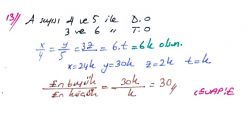 13// A sayısı 4 ve 5 ile D.O
3 ve 6 " T.O
x/4 = y/5 = 3z/ = 6.t = 6k olsun.
x=24k y=30k z=2k t=k
En büyük/En küçük = 30k/k = 30// CEVAP:E